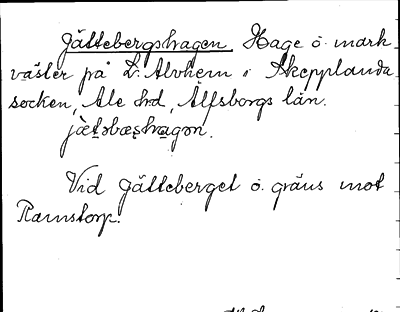 Jättebergshagen Hage o. mark
väster på L. Alvhem i Skepplanda
socken, Ale hrd, Älfsborgs län.
jætəbæʂhagən.
Vid Jätteberget o. gräns mot
Ramstorp.